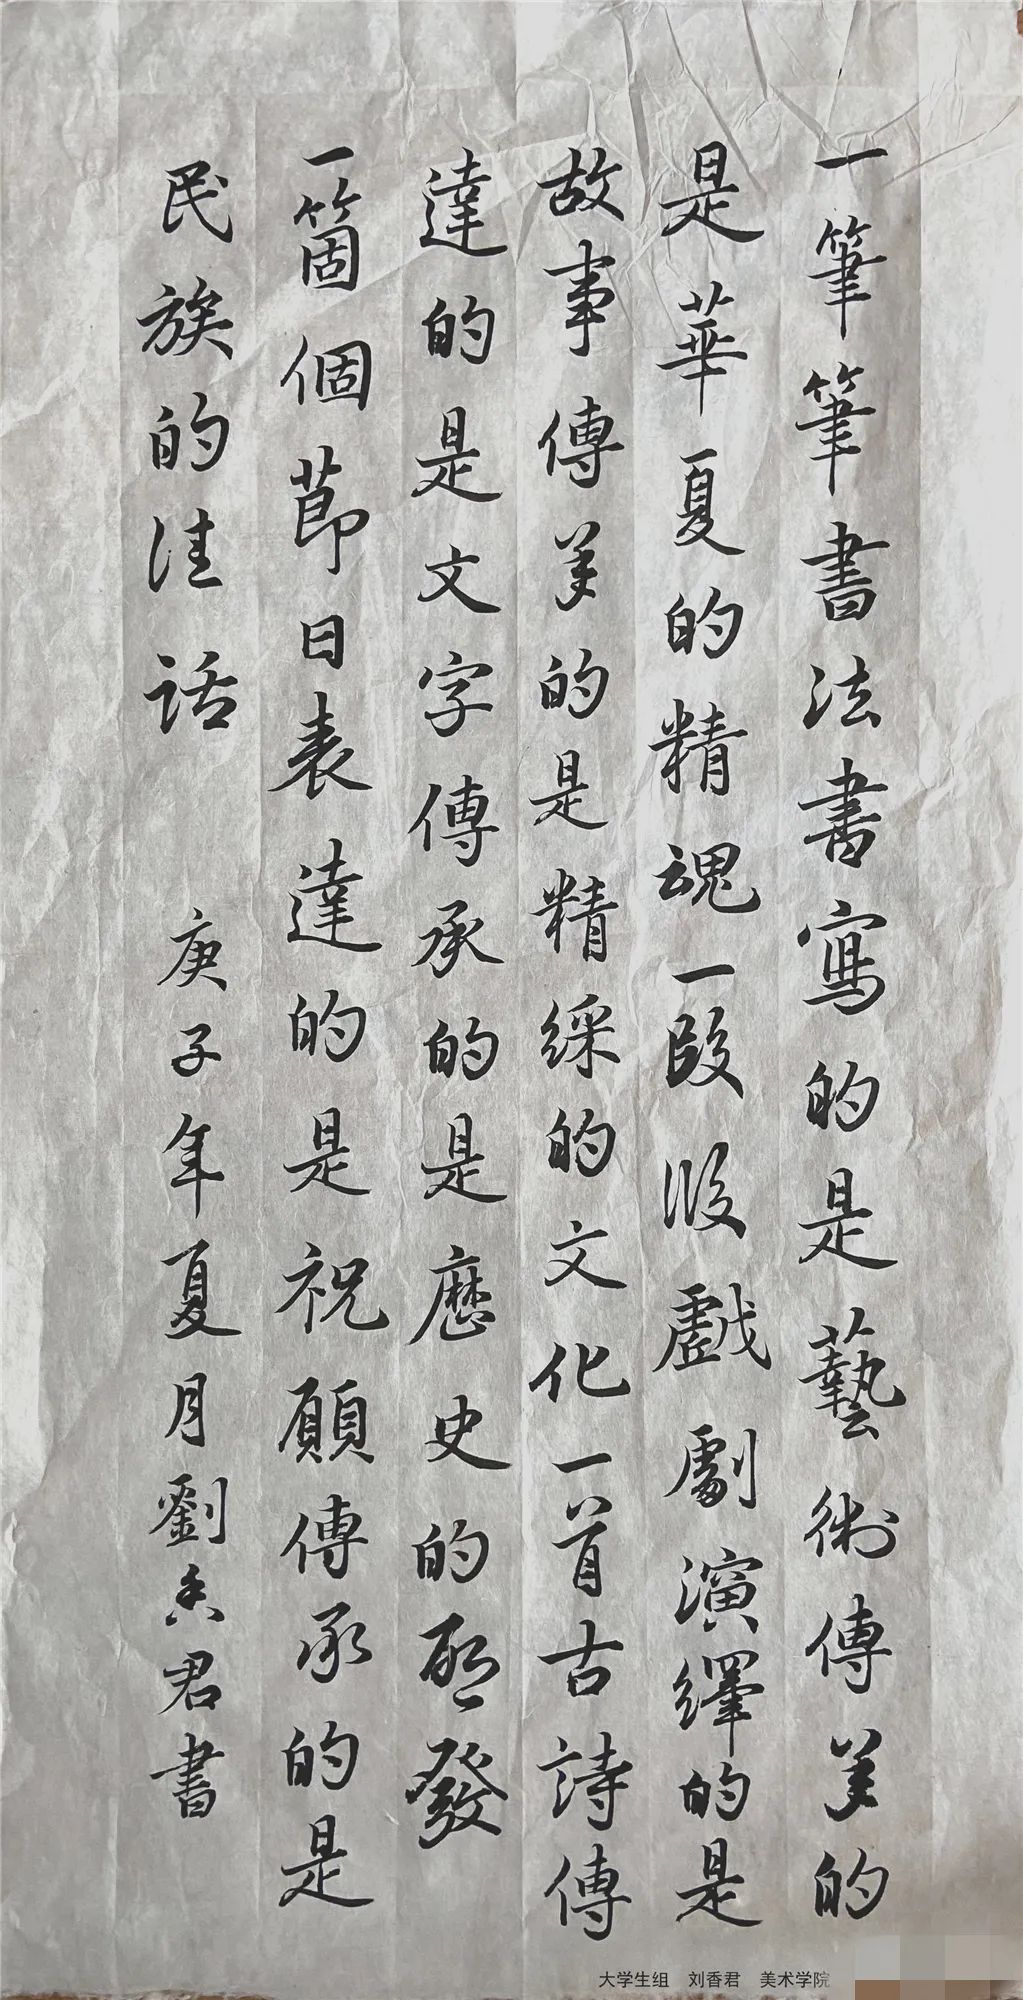 一筆筆書法書寫的是藝術傳美的
是華夏的精魂一段段戲劇演繹的是
故事傳美的是精綵的文化一首古詩傳
達的是文字傳承的是歷史的啟發
一箇個節日表達的是祝願傳承的是
民族的佳話 庚子年夏月劉香君書
大学生组 刘香君 美术学院